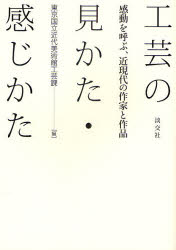 工芸の
見かた・
感じかた
感動を呼ぶ、近現代の作家と作品
東京国立近代美術館工芸課[編]
淡交社